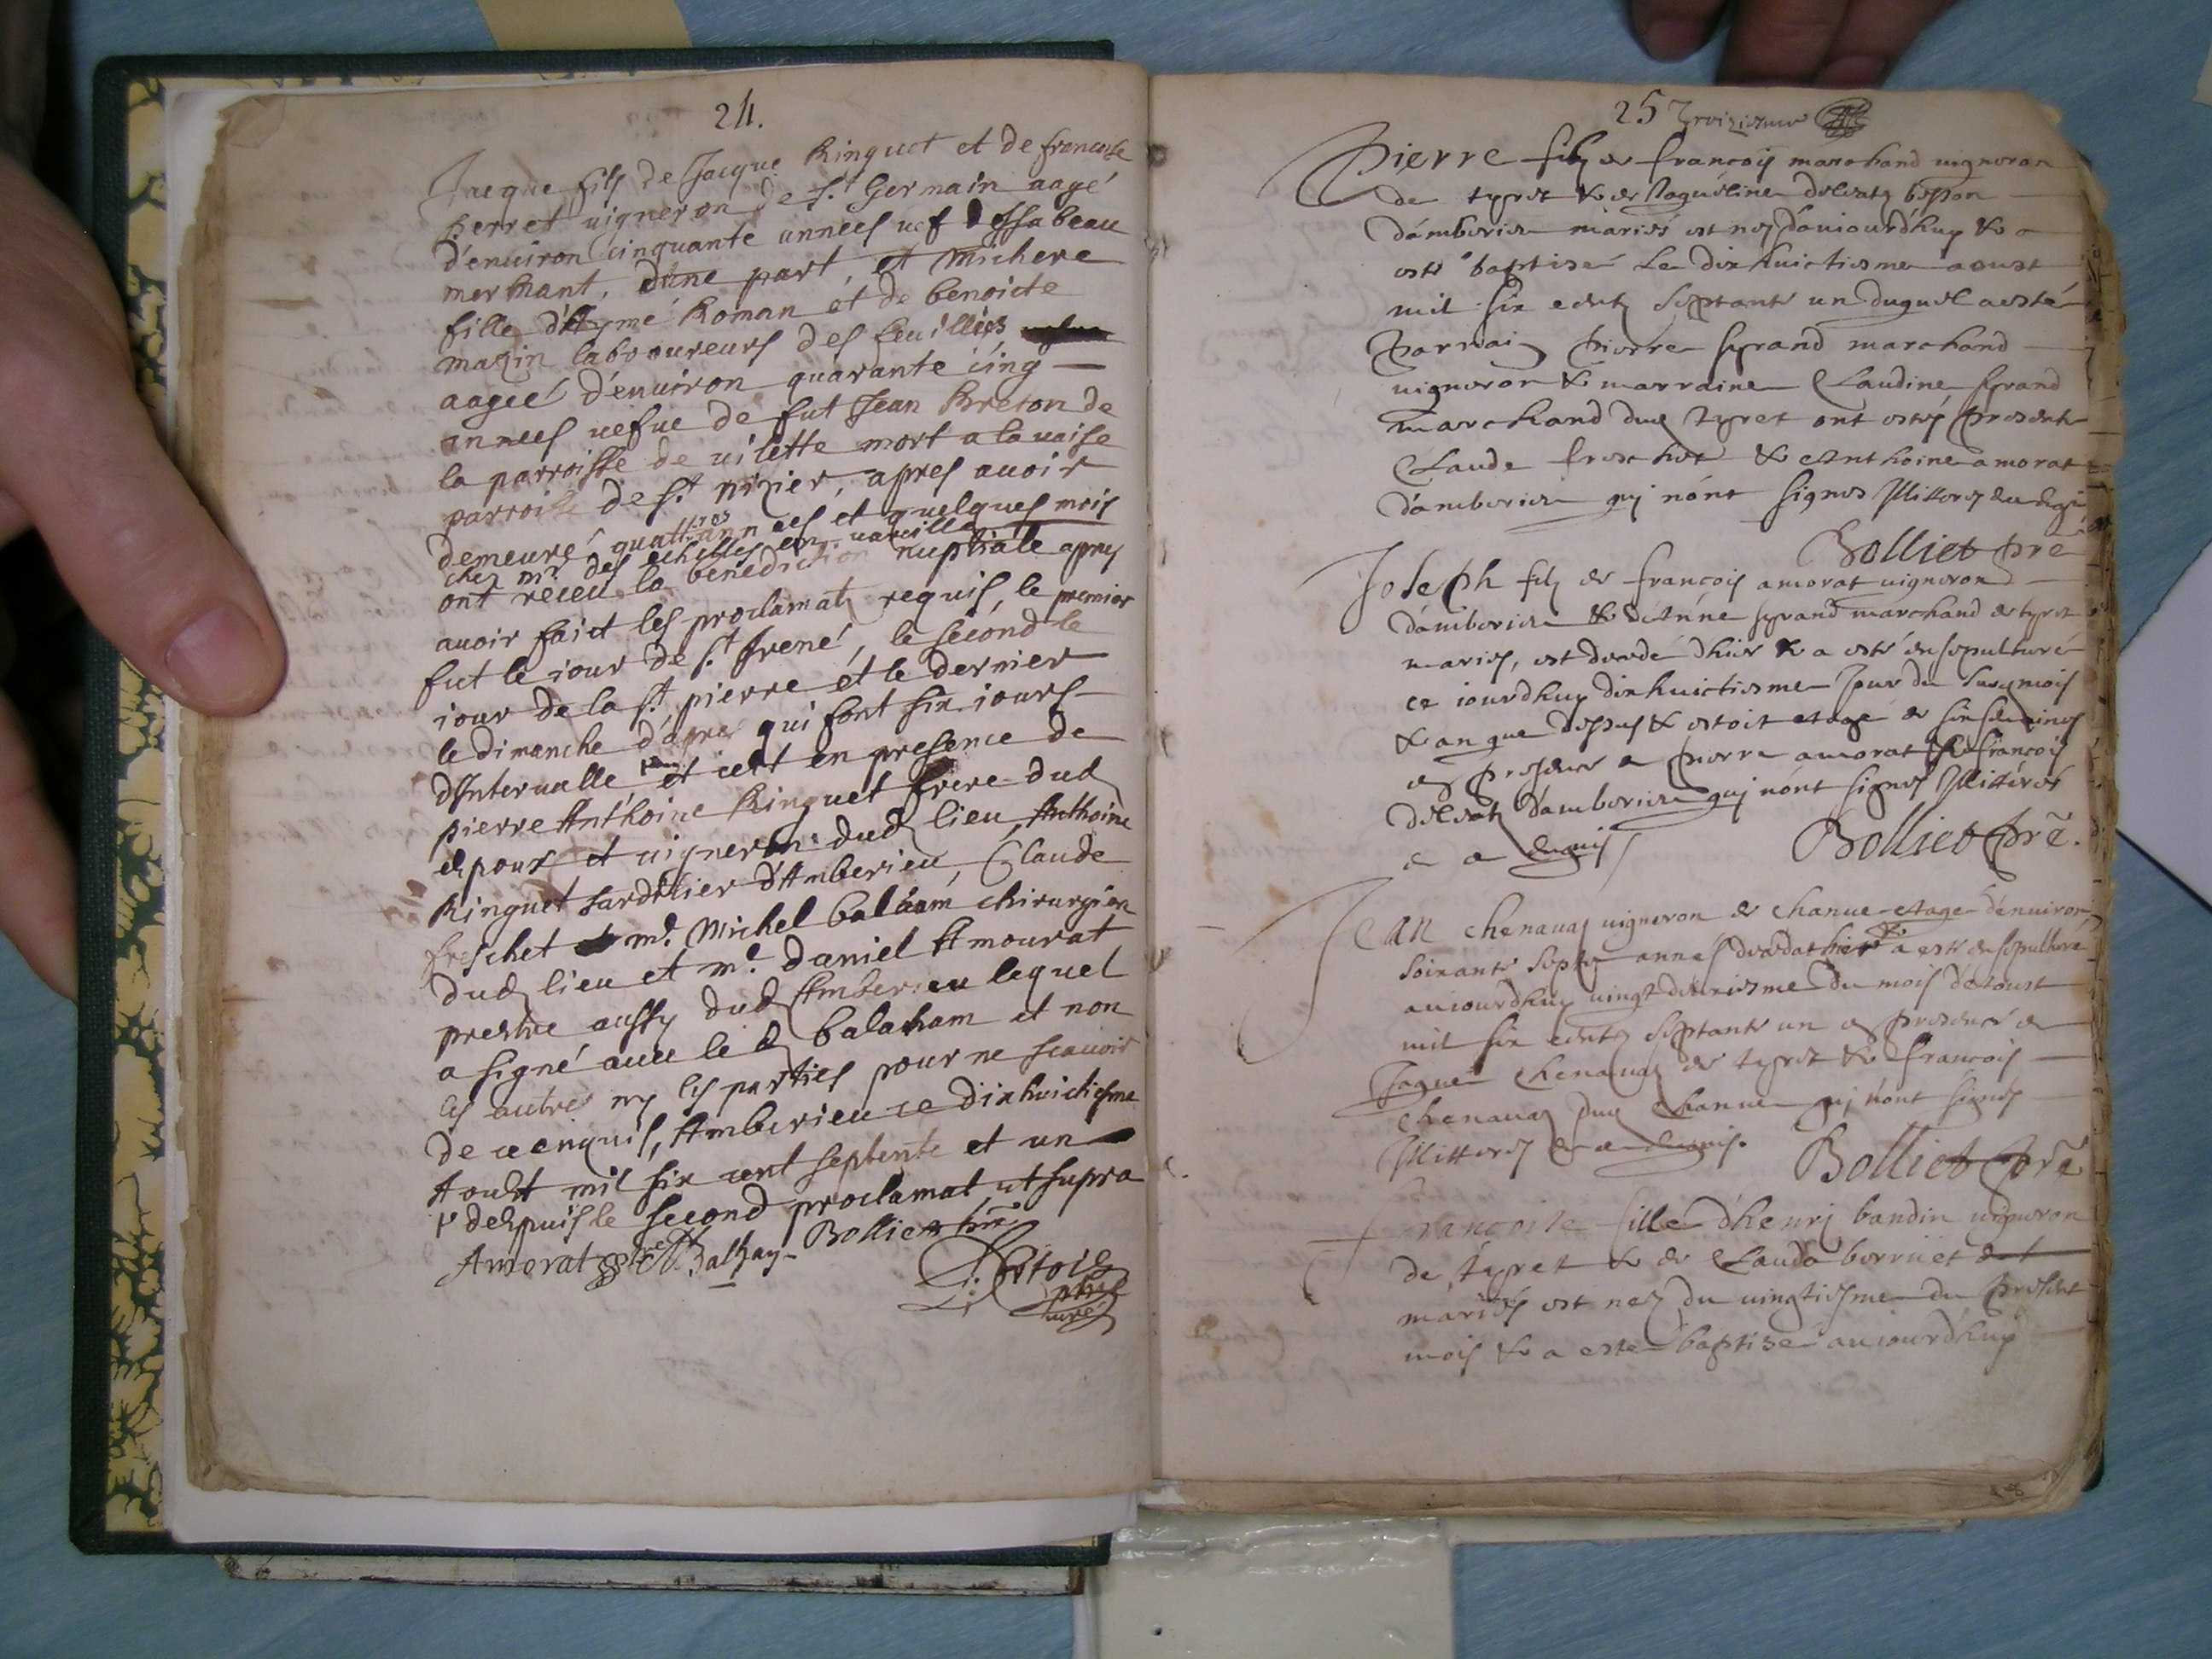 24.
Jacque fils de Jacque Ringuet et de francoise
perret uigneron de s.t Germain aagé
d'enuiron cinquante annees uef d essabeau
merhant, dune part, et Michere
fille d'Aymé Roman et de benoicte
mazin laboureurs des feuillies
aageé d'enuiron quarante cinq
annees uefue de fut Jean Breton de
la parroisse de uilette mort a la uaise
parroisse de s.t nizier, apres auoir
demeuré quattres annees et quelques mois
chez mr des echelles en
ont receu la benediction nuptiale apres
auoir faict les proclamatz requis, le premier
fut le iour de s.t Irené, le second le
iour de la s.t pierre et le dernier
le dimanche d'apres qui sont six iours
d'Interualle et cest en presence de
pierre Anthoine Ringuet frere dud
espoux et uigneron dud lieu, Anthoine
Ringuet sardelier d'Amberieu, Claude
freschet m.e Michel balaam chirurgien
dud lieu et m.e daniel Amourat
prestre aussy dud Amberieu lequel
a signé auec le d balaham et non
les autres ny les parties pour ne scauoir
de ce enquis, Amberieu ce dixhuictiesme
Aoust mil six cent septente et un
+ despuis le second proclamat ut supra
Amorat Balhay Bolliet pre
pbre
curé
25
Pierre filz de francois marchand uigneron
de tyret & de Jaqueline besson
d'amberieu mariés est nez d'auiourdhuy & a
esté baptisé Le dixhuictiesme aoust
mil six centz septante un duquel a esté
Parrain Pierre marchand
uigneron & marraine Claudine
marchand dud tyret ont estés presents
Claude freschet & Anthoine amorat
d'amberieu qui n'ont signes Illitteres
Bolliet pre
Joseph filz de francois amorat uigneron
d'amberieu & d'Anne marchand de tyret
maries, est d'hier & a esté ensepulturé
ce iourdhuy dixhuictiesme Jour du mois
& an que dessus & estoit eage de six semaines
en presence de pierre amorat & francois
d'amberieu qui n'ont signes Illitteres
de ce enquis
Bolliet pre.
Jean chenaual uigneron de chanue eage d'enuiron
soixante sept annes hier & a esté ensepulturé
auiourdhuy uingt du mois d'Aoust
mil six centz septante un en presence de
Jaques chenaual de tyret & francois
chenaual dud chanue qui n'ont signes
Illitteres de ce enquis.
Bolliet pre
francoise fille d'henry baudin uigneron
de tyret & de Clauda
mariés est nez du uingtiesme du present
mois & a esté baptise auiourdhuy